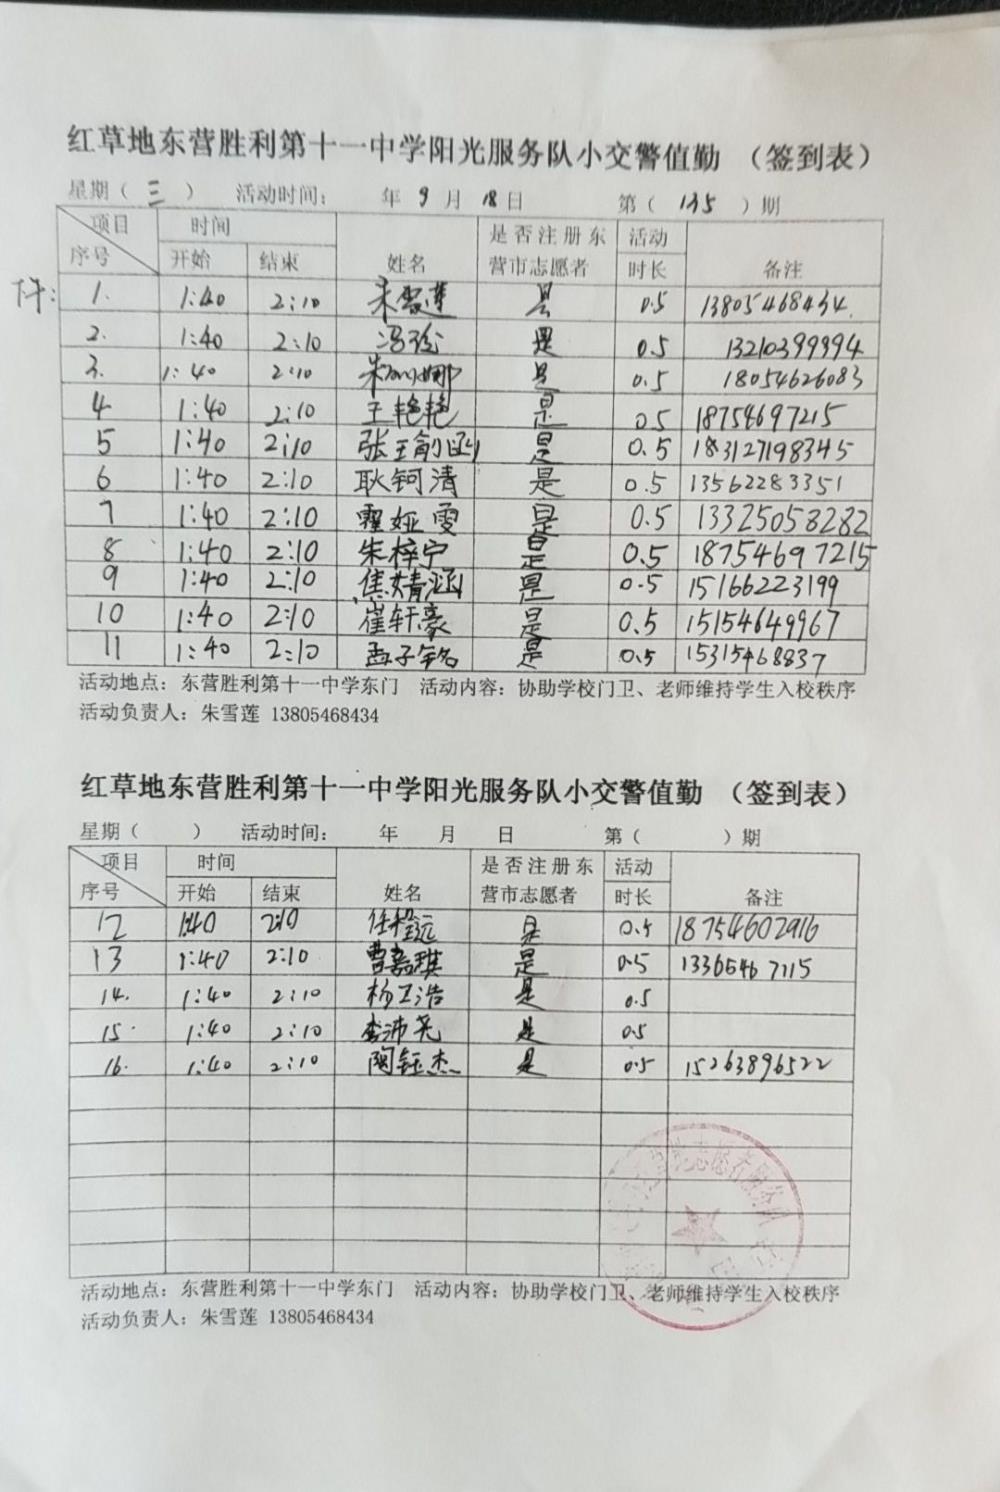 红草地东营胜利第十一中学阳光服务队小交警值勤 （签到表）
星期（ 三 ） 活动时间： 年 9 月 18 日 第（ 135 ）期
项目 时间 是否注册东 活动
序号 开始 结束 姓名 营市志愿者 时长 备注
下午: 1. 1:40 2:10 朱雪莲 是 0.5 13805468434.
2. 1:40 2:10 冯玲 是 0.5 13210399994
3. 1:40 2:10 是 0.5 18054626083
4 1:40 2:10 王艳艳 是 0.5 18754697215
5 1:40 2:10 张王俞函 是 0.5 183127198345
6 1:40 2:10 耿钶清 是 0.5 13562283351
7 1:40 2:10 霍娅雯 是 0.5 13325058282
8 1:40 2:10 朱梓宁 是 0.5 18754697215
9 1:40 2:10 焦婧涵 是 0.5 15166223199
10 1:40 2:10 崔轩豪 是 0.5 15154649967
11 1:40 2:10 孟子铭 是 0.5 15315468837
活动地点：东营胜利第十一中学东门 活动内容：协助学校门卫、老师维持学生入校秩序
活动负责人：朱雪莲 13805468434
红草地东营胜利第十一中学阳光服务队小交警值勤 （签到表）
星期（ ） 活动时间： 年 月 日 第（ ）期
项目 时间 是否注册东 活动
序号 开始 结束 姓名 营市志愿者 时长 备注
12 1:40 2:10 任程远 是 0.5 18754602916
13 1:40 2:10 曹嘉琪 是 0.5 13365467115
14. 1:40 2:10 杨卫浩 是 0.5
15. 1:40 2:10 李沛尧 是 0.5
16. 1:40 2:10 陶钰杰 是 0.5 15263896522
活动地点：东营胜利第十一中学东门 活动内容：协助学校门卫、老师维持学生入校秩序
活动负责人：朱雪莲 13805468434